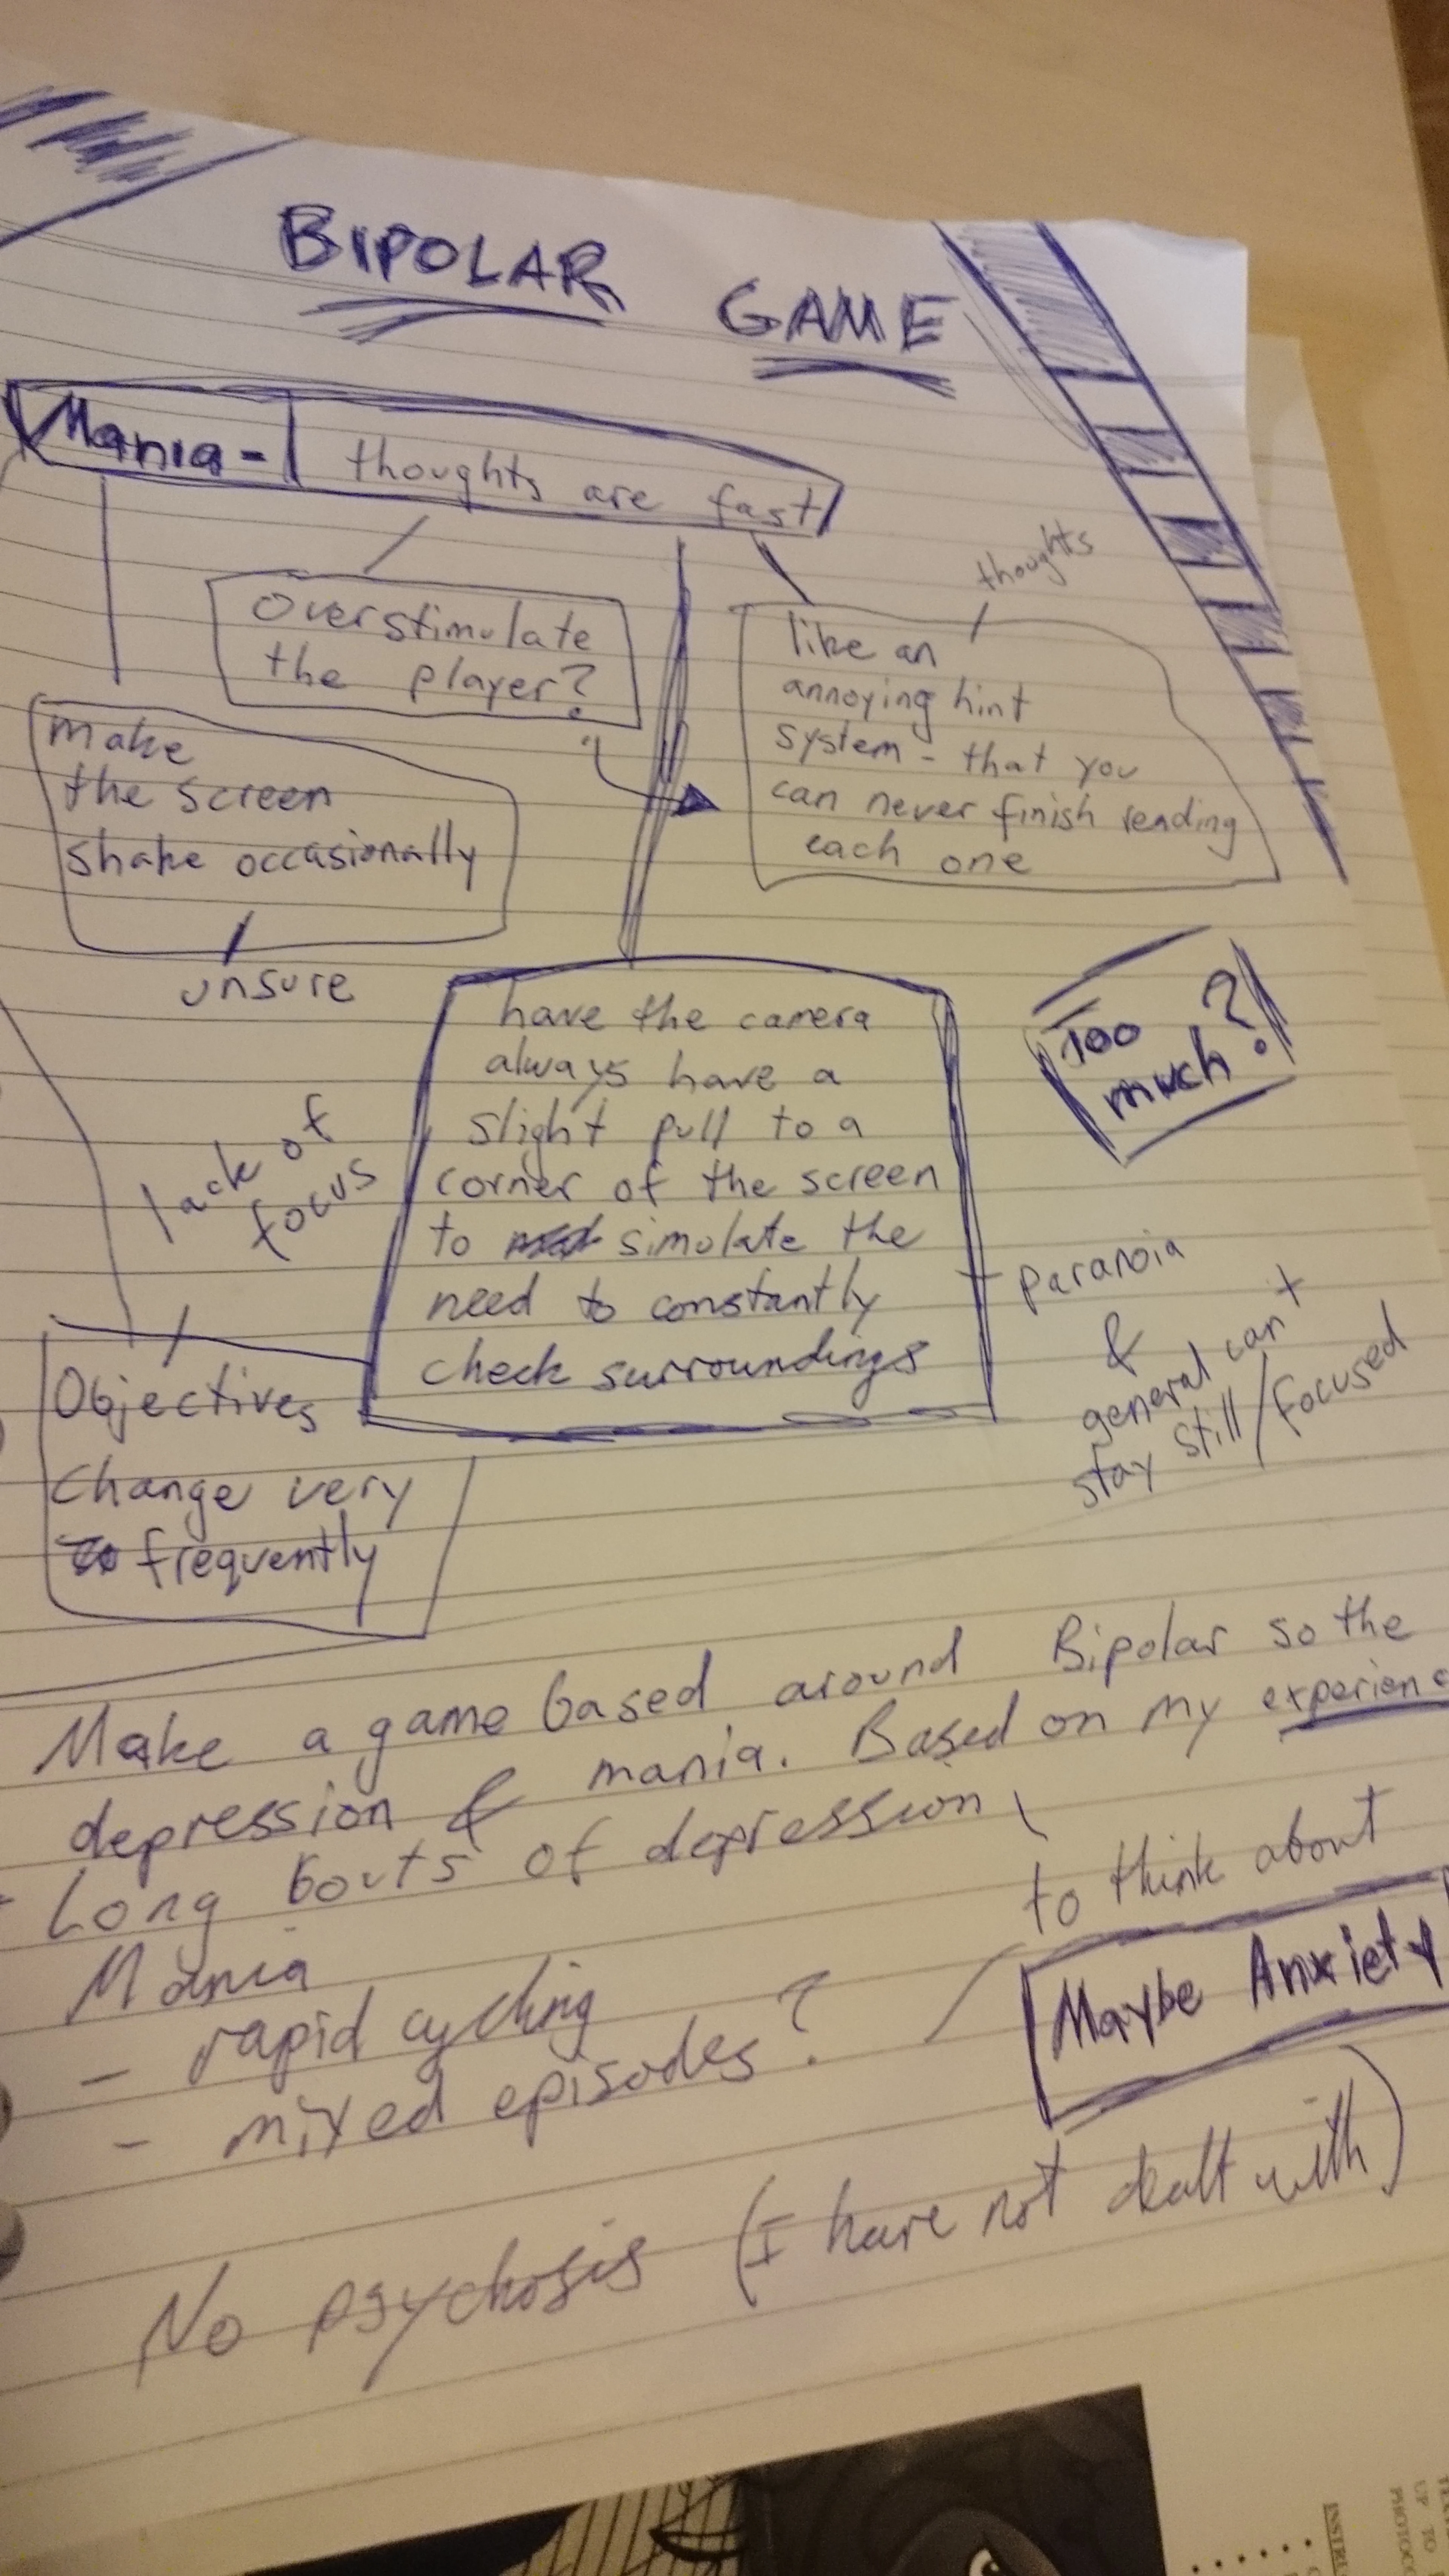 BIPOLAR GAME
Mania - thoughts are fast
thoughts
Overstimulate
the player?
like an
annoying hint
system - that you
can never finish reading
each one
make
the screen
shake occasionally
unsure
Too
much?
have the camera
always have a
slight pull to a
corner of the screen
to simulate the
need to constantly
check surroundings
lack of
focus
paranoia
&
general can't
stay still/focused
Objectives
Change very
frequently
Make a game based around Bipolar so the
depression & mania. Based on my experienc
- Long bouts of depression
to think about
Mania
Maybe Anxiety
- rapid cycling
- mixed episodes?
No psychosis (I have not dealt with)
INSTRU
UP TO
PHOTOCO